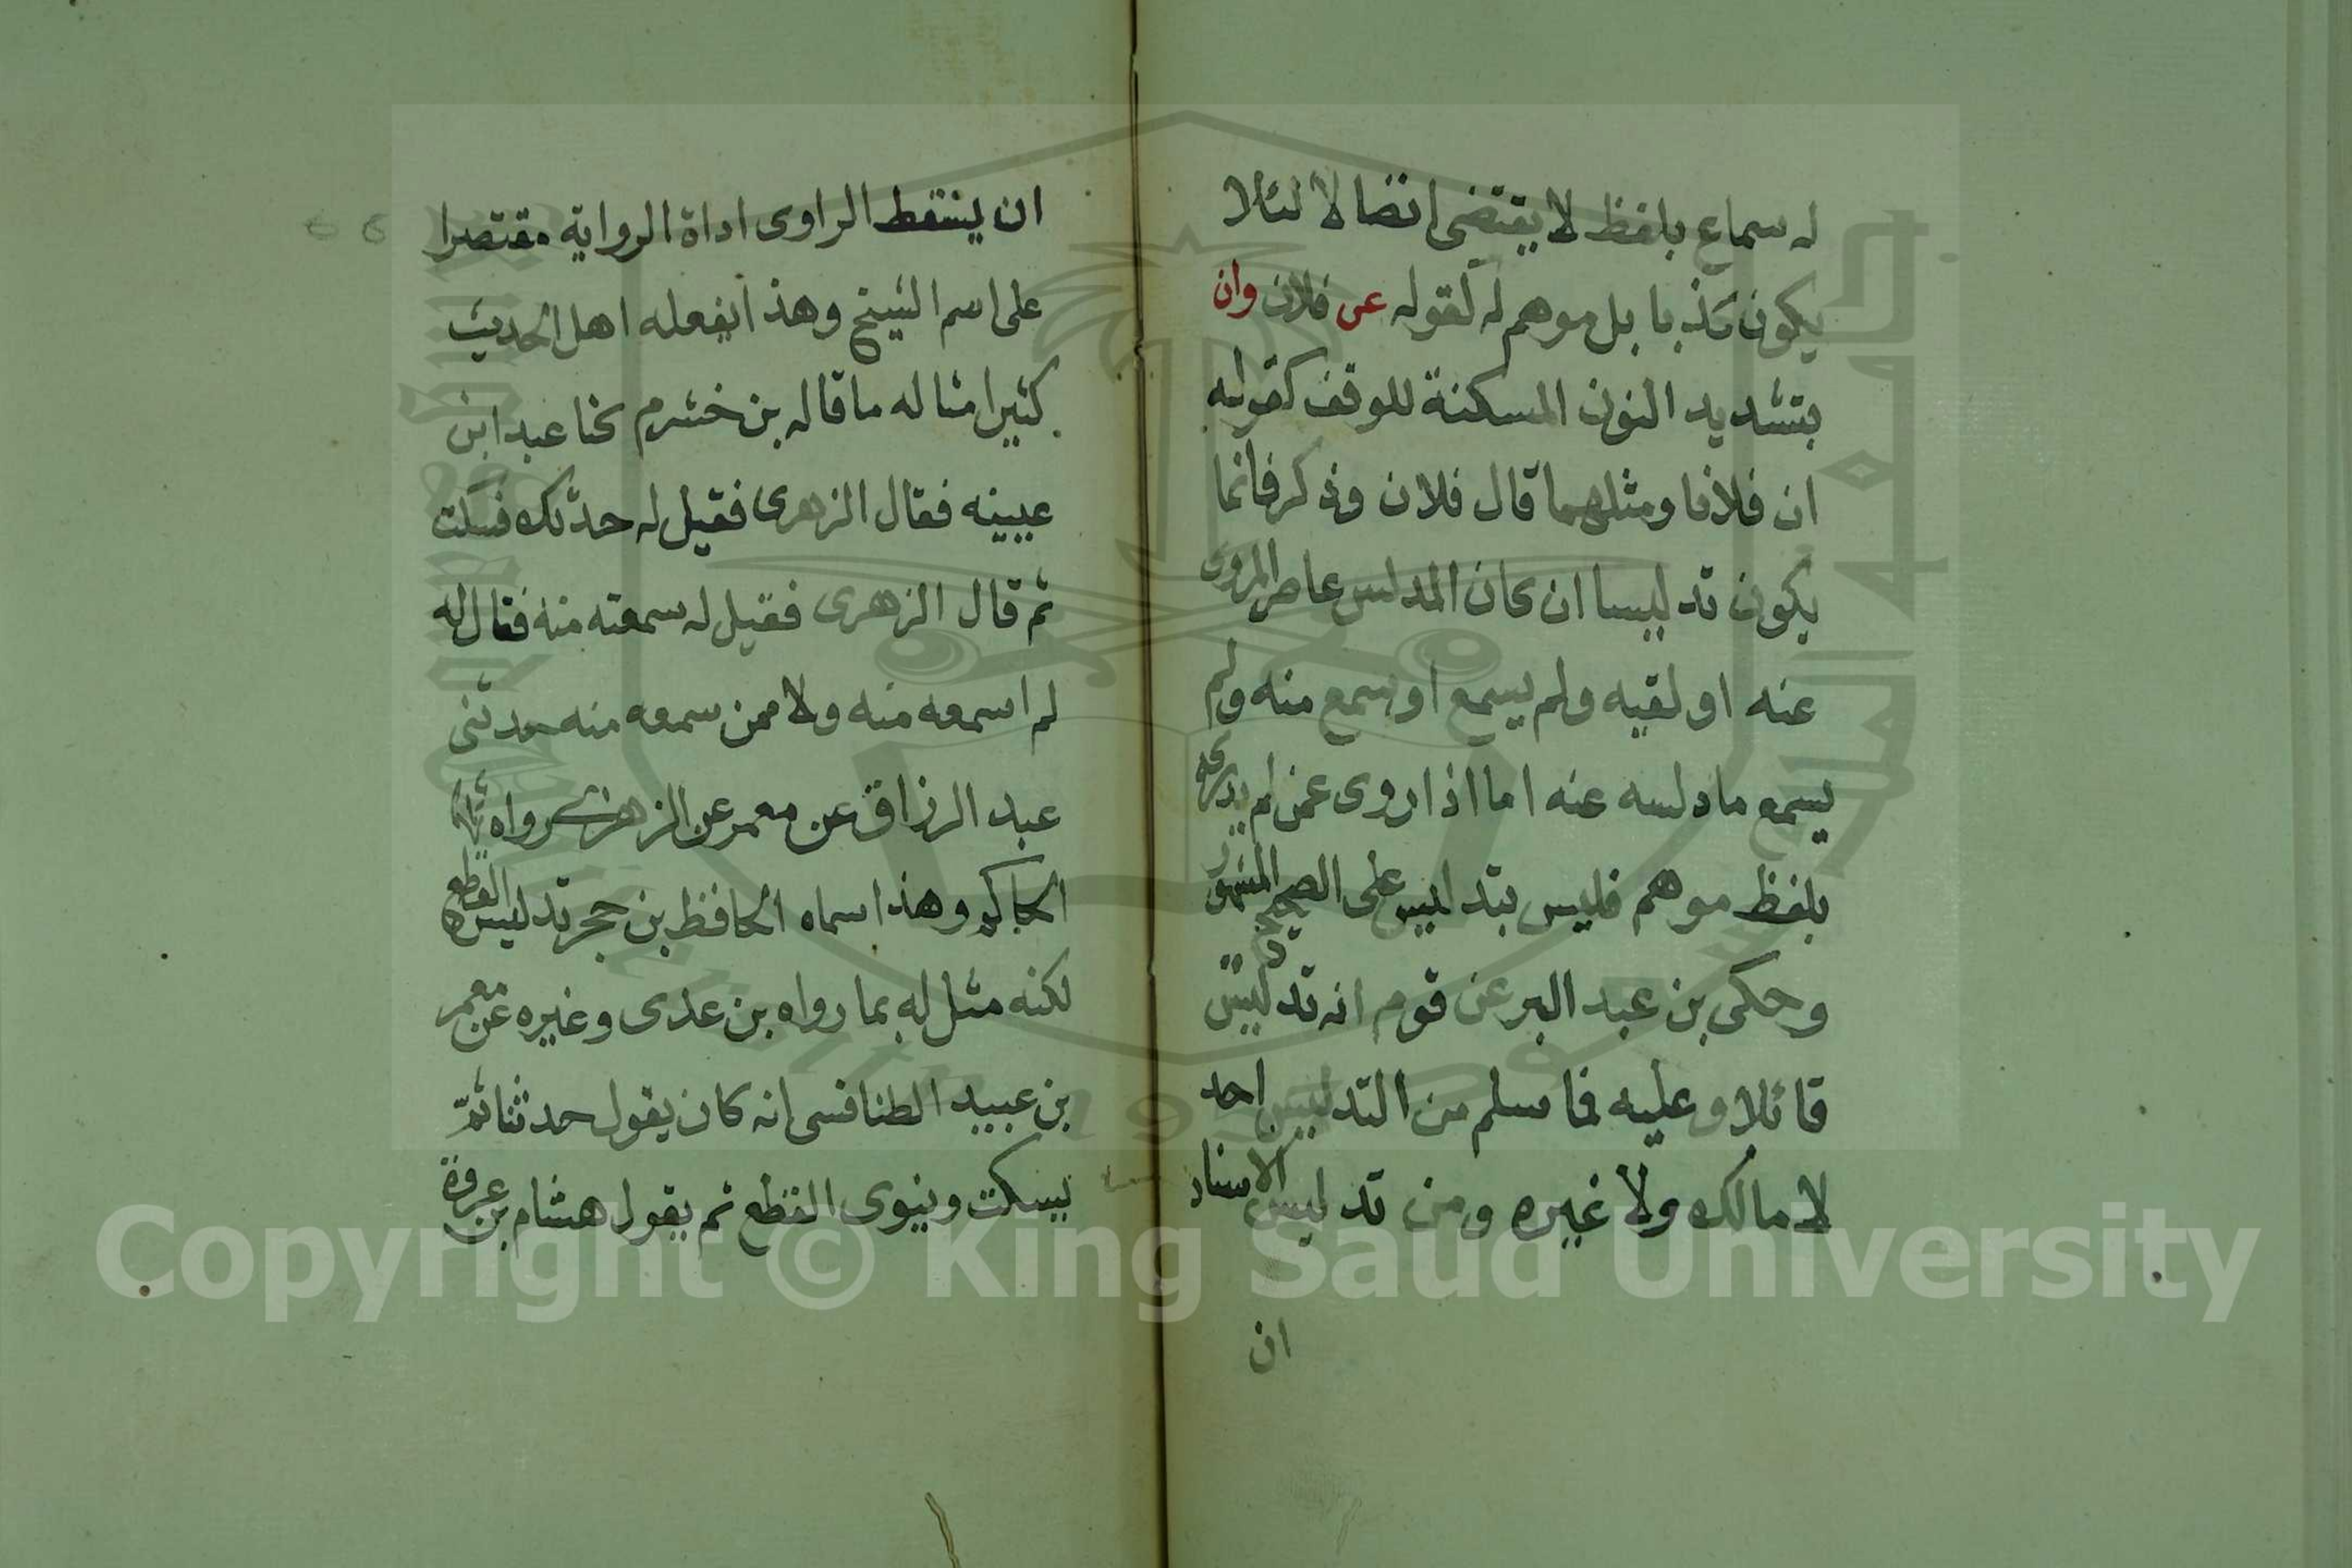 له سماع بلفظ لا يقتضى اتصالا لئلا
يكون كذبا بل موهم له كقوله عن فلان وان
بتشديد النون المسكنة للوقف كقوله
ان فلانا ومثلهما قال فلان وذكر فانما
يكون تدليسا ان كان المدلس عاصر المروى
عنه او لقيه ولم يسمع او سمع منه ولم
يسمع ما دلسه عنه اما اذا روى عمن لم يدركه
بلفظ موهم فليس بتدليس على الصحيح المشهور
وحكى بن عبد البر عن قوم انه تدليس
قائلا وعليه فما سلم من التدليس احد
لا مالك ولا غيره ومن تدليس الاسناد
ان
ان يسقط الراوى اداة الرواية مقتصرا
على اسم الشيخ وهذا يفعله اهل الحديث
كثيرا مثاله ما قاله بن خشرم كنا عند ابن
عيينه فقال الزهرى فقيل له حدثك فسكت
ثم قال الزهرى فقيل له سمعته منه فقال له
لم اسمعه منه ولا ممن سمعه منه حدثنى
عبد الرزاق عن معمر عن الزهرى رواه
الحاكم وهذا سماه الحافظ بن حجر تدليس القطع
لكنه مثل له بما رواه بن عدى وغيره عن معمر
بن عبيد الطنافسى انه كان يقول حدثنا ثم
يسكت وينوى القطع ثم يقول هشام بن عروة
Copyright © King Saud University